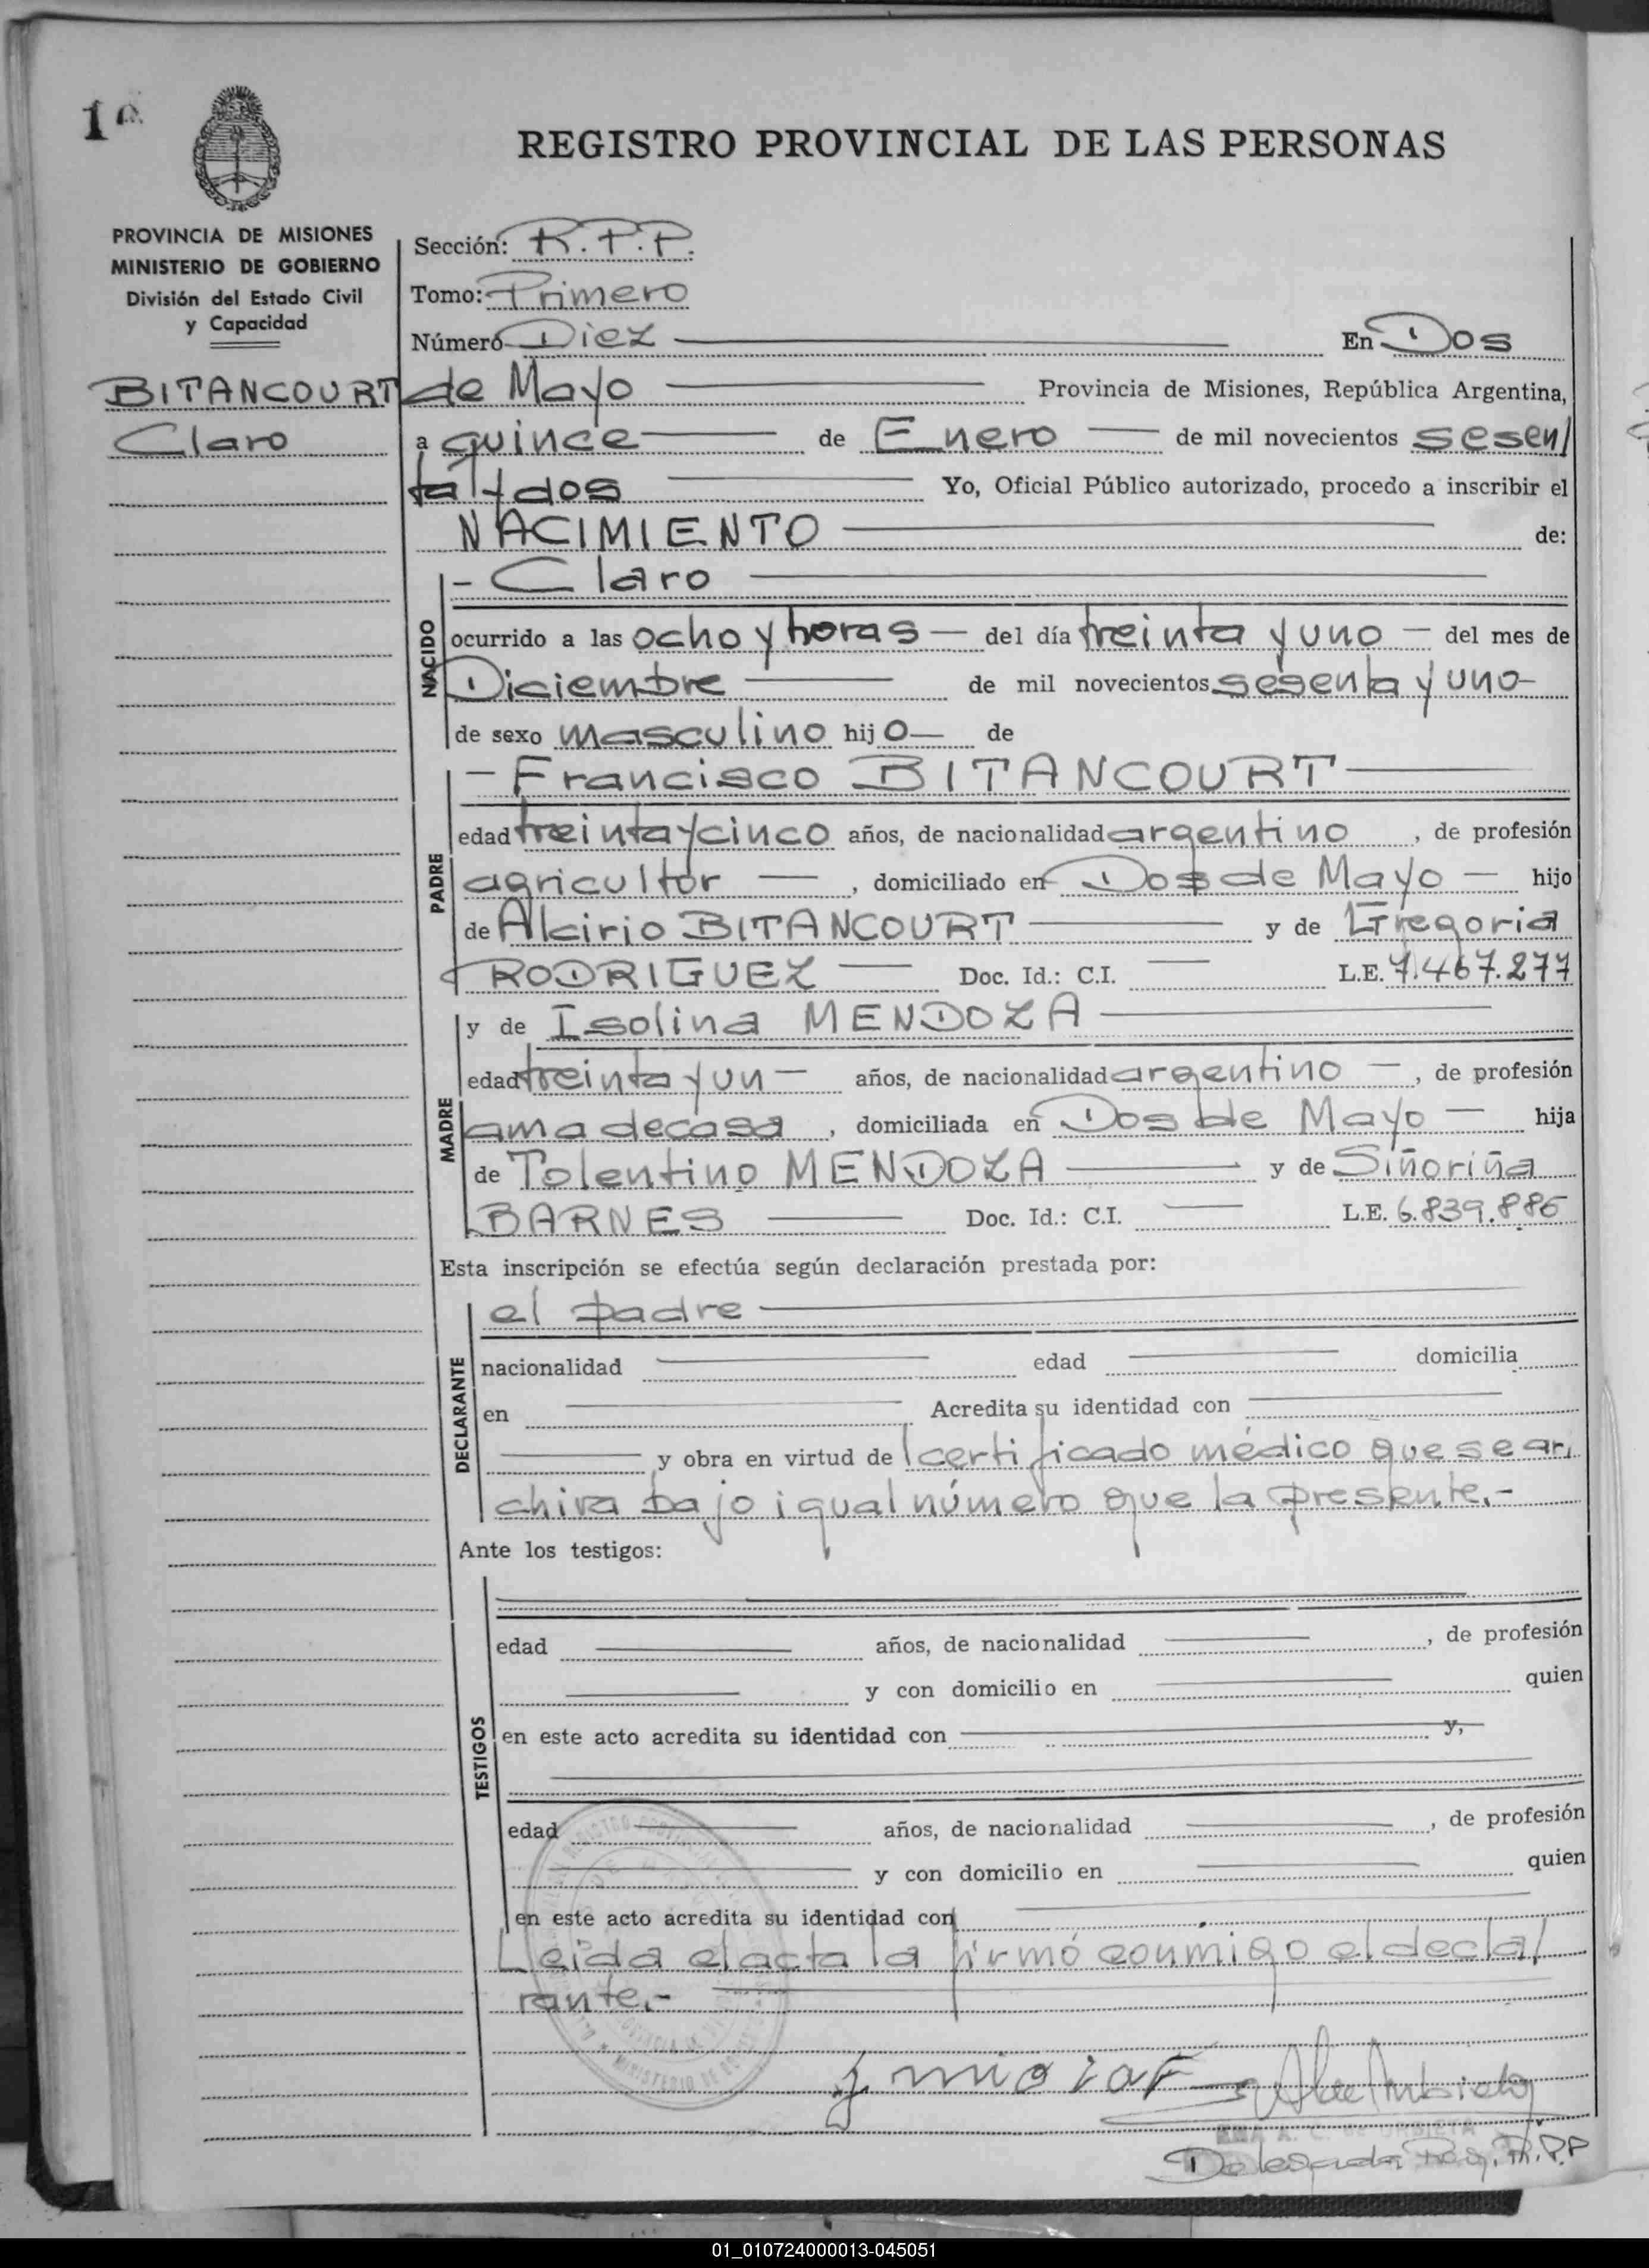 REGISTRO PROVINCIAL DE LAS PERSONAS
PROVINCIA DE MISIONES
MINISTERIO DE GOBIERNO
División del Estado Civil
y Capacidad
BITANCOURT
Claro
Sección: R.P.P.
Tomo: Primero
Número Diez En Dos
de Mayo Provincia de Misiones, República Argentina,
a quince de Enero de mil novecientos sesen/
ta y dos Yo, Oficial Público autorizado, procedo a inscribir el
NACIMIENTO de:
NACIDO
- Claro
ocurrido a las ocho y horas — del día treinta y uno — del mes de
Diciembre de mil novecientos sesenta y uno
de sexo masculino hijo — de
PADRE
- Francisco BITANCOURT
edad treinta y cinco años, de nacionalidad argentino, de profesión
agricultor —, domiciliado en Dos de Mayo — hijo
de Alcirio BITANCOURT y de Gregoria
RODRIGUEZ — Doc. Id.: C.I. — L.E. 7.467.277
MADRE
y de Isolina MENDOZA
edad treinta y un — años, de nacionalidad argentino —, de profesión
ama de casa, domiciliada en Dos de Mayo — hija
de Tolentino MENDOZA y de Siñoriña
BARNES — Doc. Id.: C.I. — L.E. 6.839.886
Esta inscripción se efectúa según declaración prestada por:
DECLARANTE
el padre
nacionalidad — edad — domicilia
en — Acredita su identidad con —
— y obra en virtud de certificado médico que se ar,
chiva bajo igual número que la presente.-
Ante los testigos:
TESTIGOS
edad — años, de nacionalidad —, de profesión
— y con domicilio en — quien
en este acto acredita su identidad con — y,
edad — años, de nacionalidad —, de profesión
— y con domicilio en — quien
en este acto acredita su identidad con
Leida el acta la firmó conmigo el decla/
rante.-
01_010724000013-045051